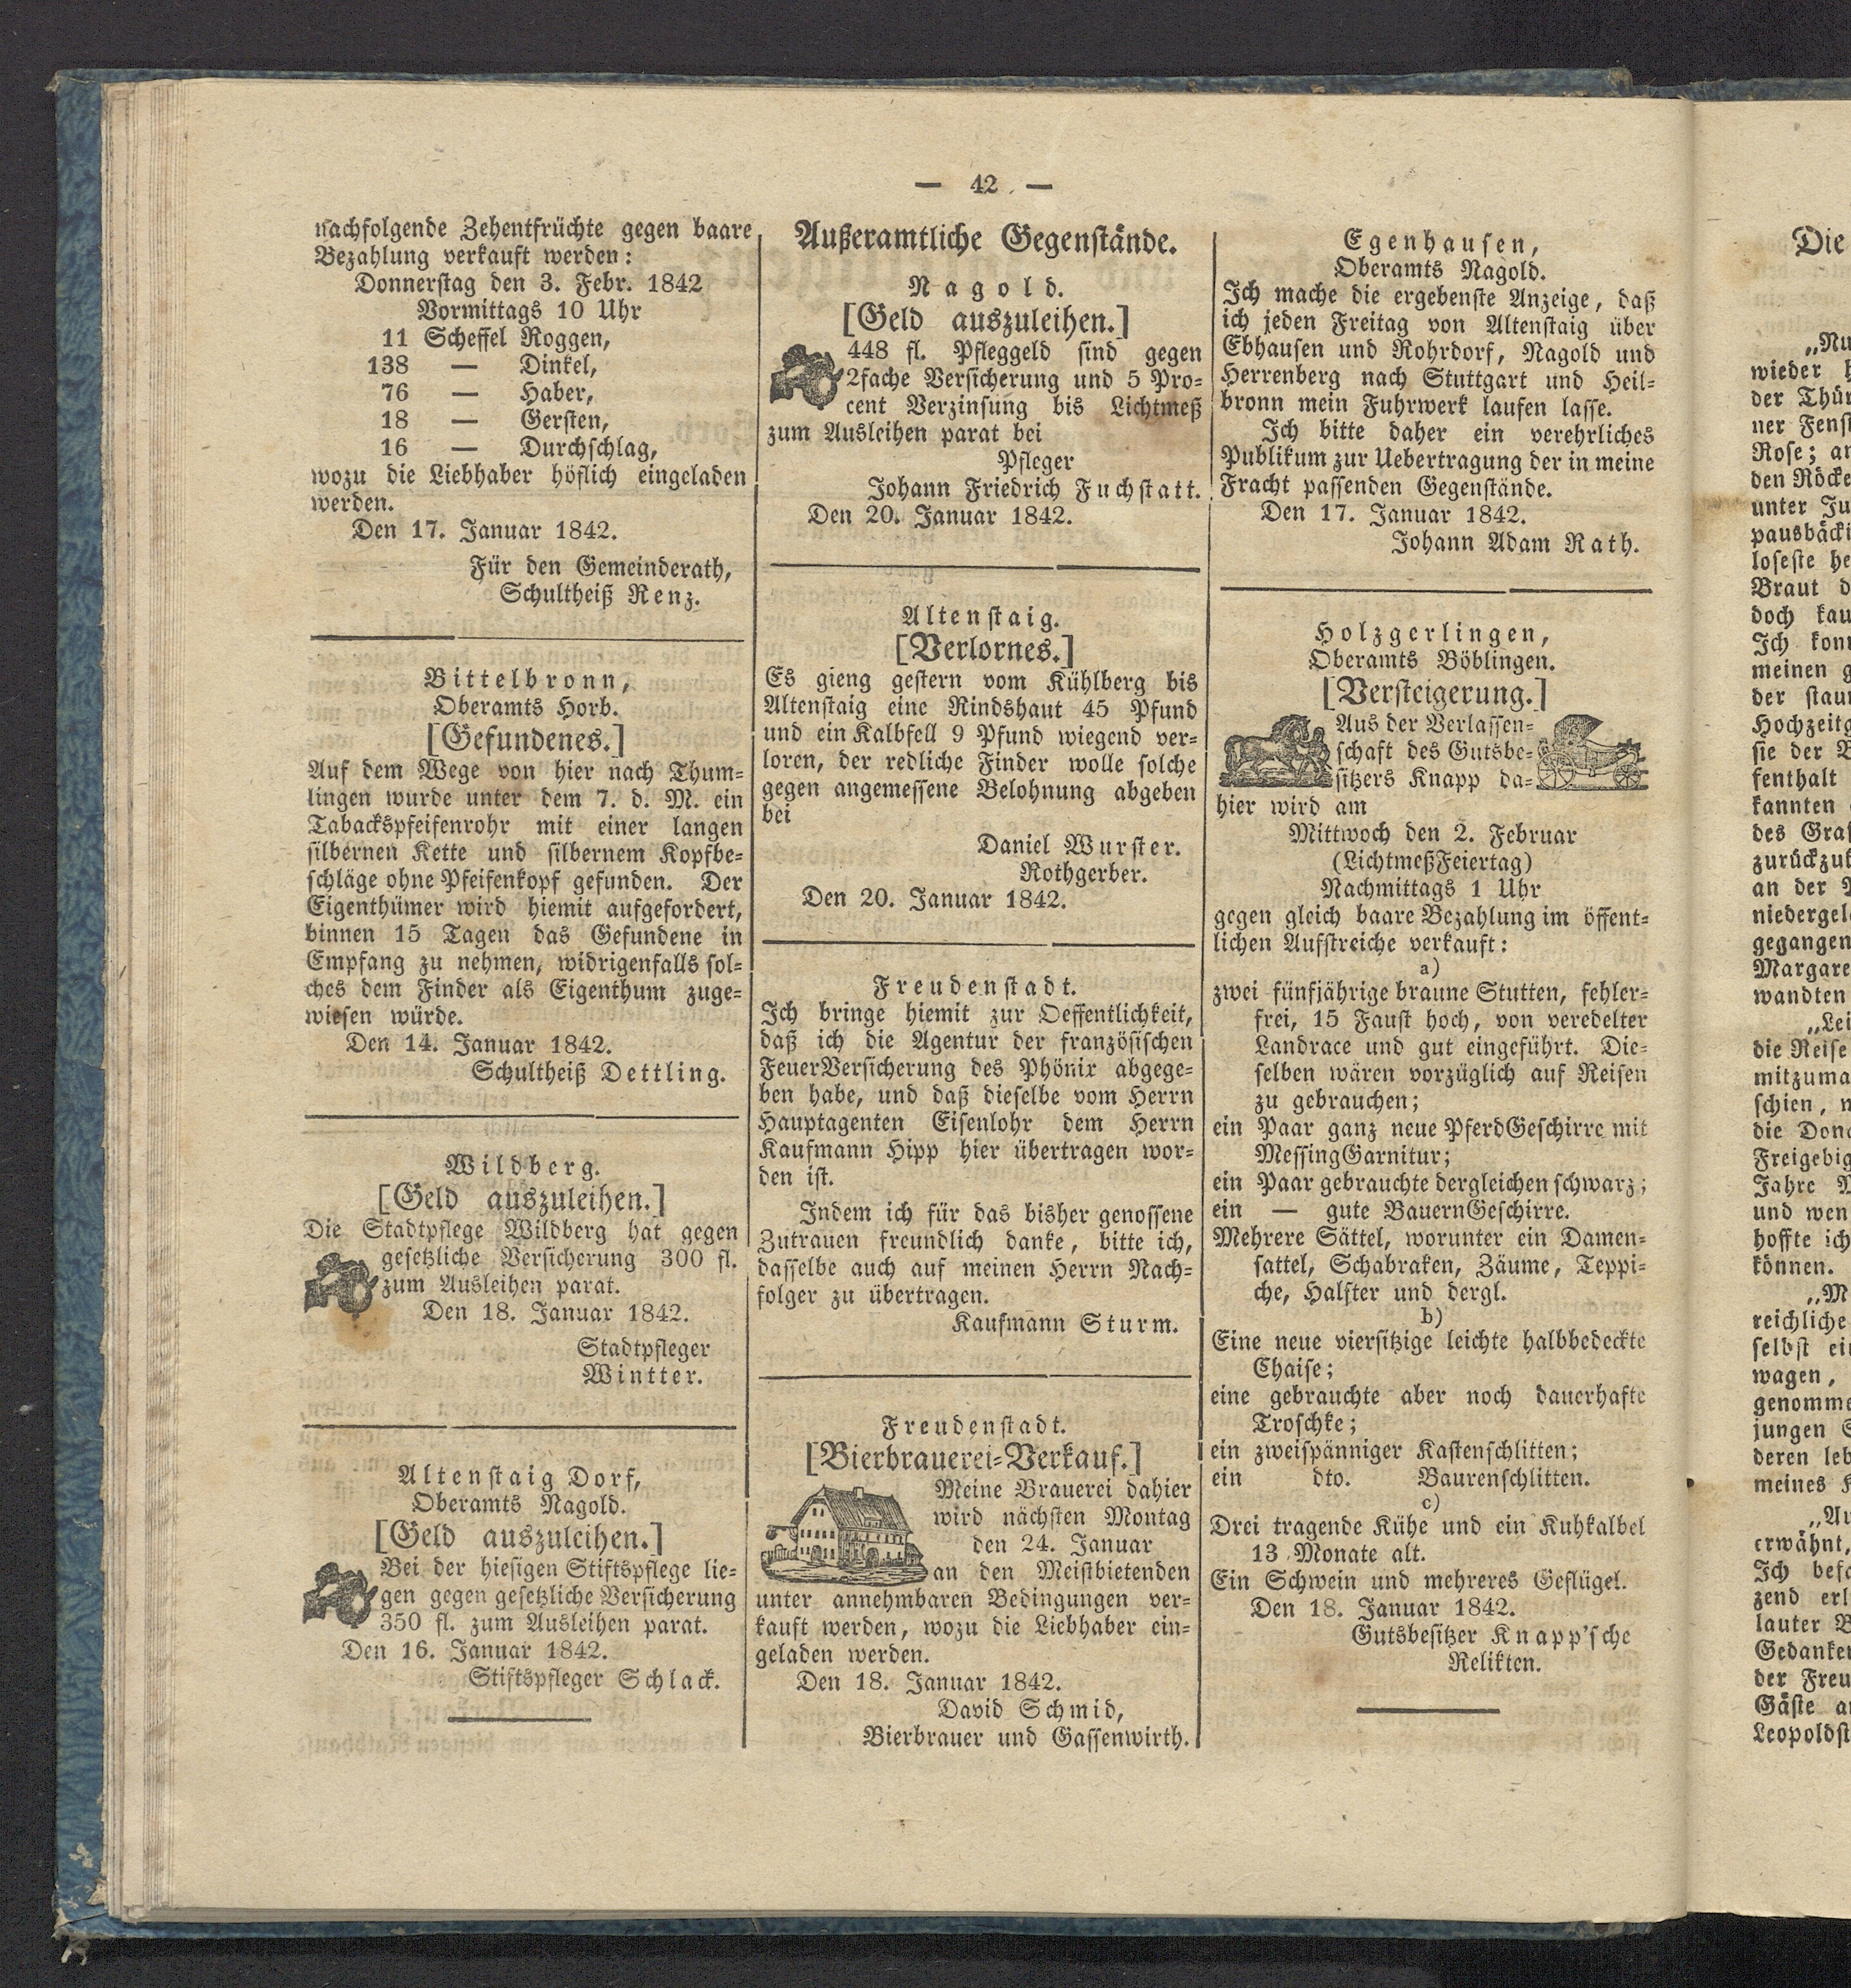 — 42 —
nachfolgende Zehentfrüchte gegen baare
Bezahlung verkauft werden:
Donnerstag den 3. Febr. 1842
Vormittags 10 Uhr
11 Scheffel Roggen,
138 — Dinkel,
76 — Haber,
18 — Gersten,
16 — Durchschlag,
wozu die Liebhaber höflich eingeladen
werden.
Den 17. Januar 1842.
Für den Gemeinderath,
Schultheiß Renz.
Bittelbronn,
Oberamts Horb.
[Gefundenes.]
Auf dem Wege von hier nach Thum-
lingen wurde unter dem 7. d. M. ein
Tabackspfeifenrohr mit einer langen
silbernen Kette und silbernem Kopfbe-
schläge ohne Pfeifenkopf gefunden. Der
Eigenthümer wird hiemit aufgefordert,
binnen 15 Tagen das Gefundene in
Empfang zu nehmen, widrigenfalls sol-
ches dem Finder als Eigenthum zuge-
wiesen würde.
Den 14. Januar 1842.
Schultheiß Dettling.
Wildberg.
[Geld auszuleihen.]
Die Stadtpflege Wildberg hat gegen
gesetzliche Versicherung 300 fl.
zum Ausleihen parat.
Den 18. Januar 1842.
Stadtpfleger
Wintter.
Altenstaig Dorf,
Oberamts Nagold.
[Geld auszuleihen.]
Bei der hiesigen Stiftspflege lie-
gen gegen gesetzliche Versicherung
350 fl. zum Ausleihen parat.
Den 16. Januar 1842.
Stiftspfleger Schlack.
Außeramtliche Gegenstände.
Nagold.
[Geld auszuleihen.]
448 fl. Pfleggeld sind gegen
2fache Versicherung und 5 Pro-
cent Verzinsung bis Lichtmeß
zum Ausleihen parat bei
Pfleger
Johann Friedrich Fuchstatt.
Den 20. Januar 1842.
Altenstaig.
[Verlornes.]
Es gieng gestern vom Kühlberg bis
Altenstaig eine Rindshaut 45 Pfund
und ein Kalbfell 9 Pfund wiegend ver-
loren, der redliche Finder wolle solche
gegen angemessene Belohnung abgeben
bei
Daniel Wurster.
Rothgerber.
Den 20. Januar 1842.
Freudenstadt.
Ich bringe hiemit zur Oeffentlichkeit,
daß ich die Agentur der französischen
FeuerVersicherung des Phönix abgege-
ben habe, und daß dieselbe vom Herrn
Hauptagenten Eisenlohr dem Herrn
Kaufmann Hipp hier übertragen wor-
den ist.
Indem ich für das bisher genossene
Zutrauen freundlich danke, bitte ich,
dasselbe auch auf meinen Herrn Nach-
folger zu übertragen.
Kaufmann Sturm.
Freudenstadt.
[Bierbrauerei-Verkauf.]
Meine Brauerei dahier
wird nächsten Montag
den 24. Januar
an den Meistbietenden
unter annehmbaren Bedingungen ver-
kauft werden, wozu die Liebhaber ein-
geladen werden.
Den 18. Januar 1842.
David Schmid,
Bierbrauer und Gassenwirth.
Egenhausen,
Oberamts Nagold.
Ich mache die ergebenste Anzeige, daß
ich jeden Freitag von Altenstaig über
Ebhausen und Rohrdorf, Nagold und
Herrenberg nach Stuttgart und Heil-
bronn mein Fuhrwerk laufen lasse.
Ich bitte daher ein verehrliches
Publikum zur Uebertragung der in meine
Fracht passenden Gegenstände.
Den 17. Januar 1842.
Johann Adam Rath.
Holzgerlingen,
Oberamts Böblingen.
[Versteigerung.]
Aus der Verlassen-
schaft des Gutsbe-
sitzers Knapp da-
hier wird am
Mittwoch den 2. Februar
(LichtmeßFeiertag)
Nachmittags 1 Uhr
gegen gleich baare Bezahlung im öffent-
lichen Aufstreiche verkauft:
a)
zwei fünfjährige braune Stutten, fehler-
frei, 15 Faust hoch, von veredelter
Landrace und gut eingeführt. Die-
selben wären vorzüglich auf Reisen
zu gebrauchen;
ein Paar ganz neue PferdGeschirre mit
MessingGarnitur;
ein Paar gebrauchte dergleichen schwarz;
ein — gute BauernGeschirre.
Mehrere Sättel, worunter ein Damen-
sattel, Schabraken, Zäume, Teppi-
che, Halfter und dergl.
b)
Eine neue viersitzige leichte halbbedeckte
Chaise;
eine gebrauchte aber noch dauerhafte
Troschke;
ein zweispänniger Kastenschlitten;
ein dto. Baurenschlitten.
c)
Drei tragende Kühe und ein Kuhkalbel
13 Monate alt.
Ein Schwein und mehreres Geflügel.
Den 18. Januar 1842.
Gutsbesitzer Knapp'sche
Relikten.
Die
„Nu
wieder
der Thür
ner Fenst
Rose; an
den Röcke
unter Ju
pausbäcki
loseste he
Braut d
doch kau
Ich konn
meinen g
der stau
Hochzeitg
sie der B
fenthalt
kannten
des Gras
zurückzuk
an der
niedergel
gegangen
Margare
wandten
„Lei
die Reise
mitzuma
schien, n
die Dona
Freigebig
Jahre
und wen
hoffte ich
können.
„M
reichliche
selbst ei
wagen,
genomme
jungen
deren leb
meines
„Au
erwähnt,
Ich befa
zend erl
lauter
Gedanken
der Freu
Gäste a
Leopoldst